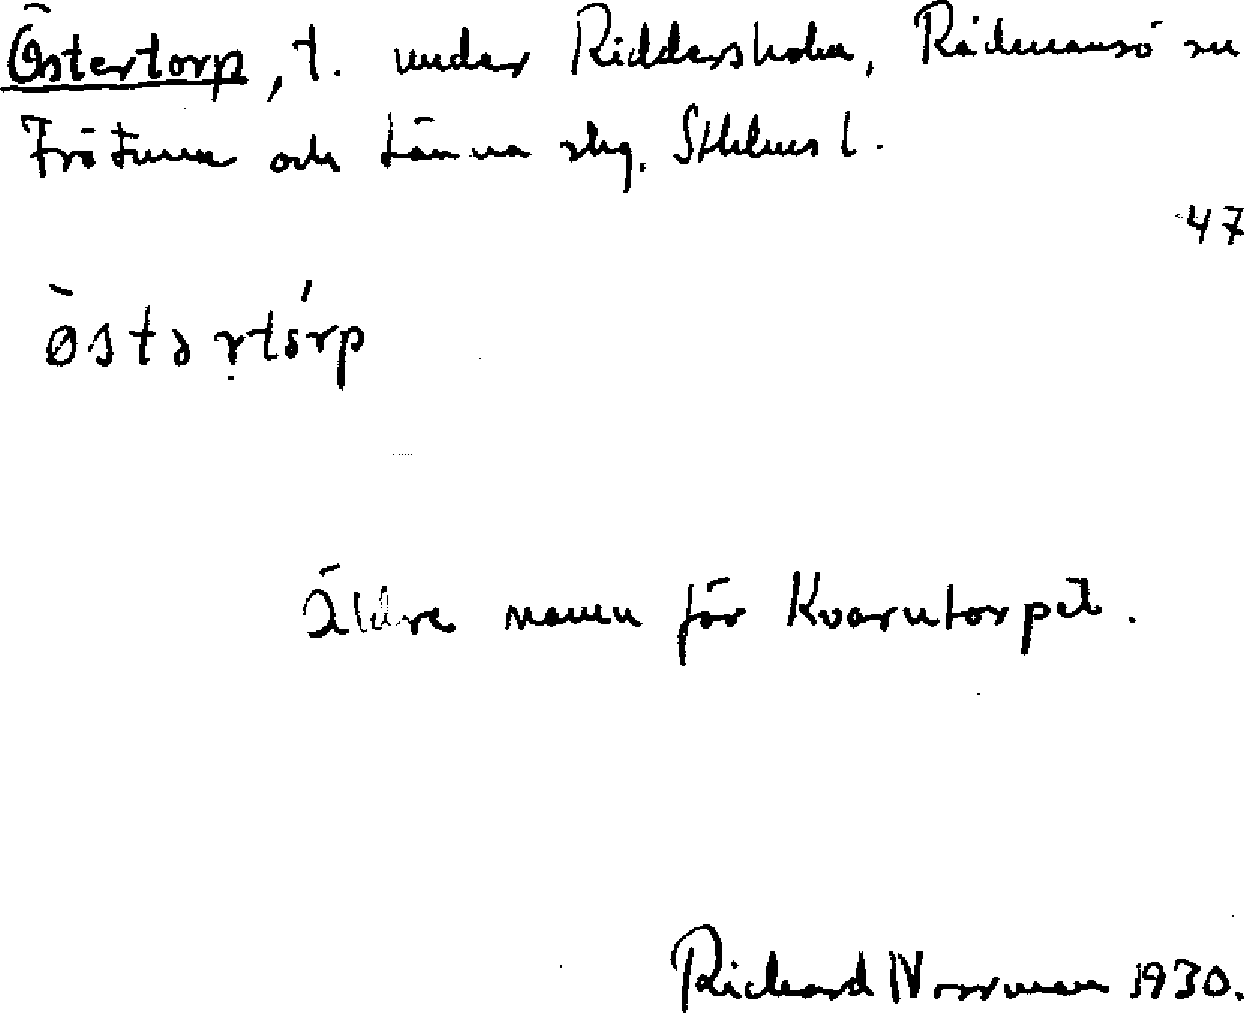 Östertorp, t. under Riddersholm, Rådmansö sn
Frötuna och Länna skg. Sthlms l.
47
östərtórp
Äldre namn för Kvarntorpet.
Richard Norrman 1930.